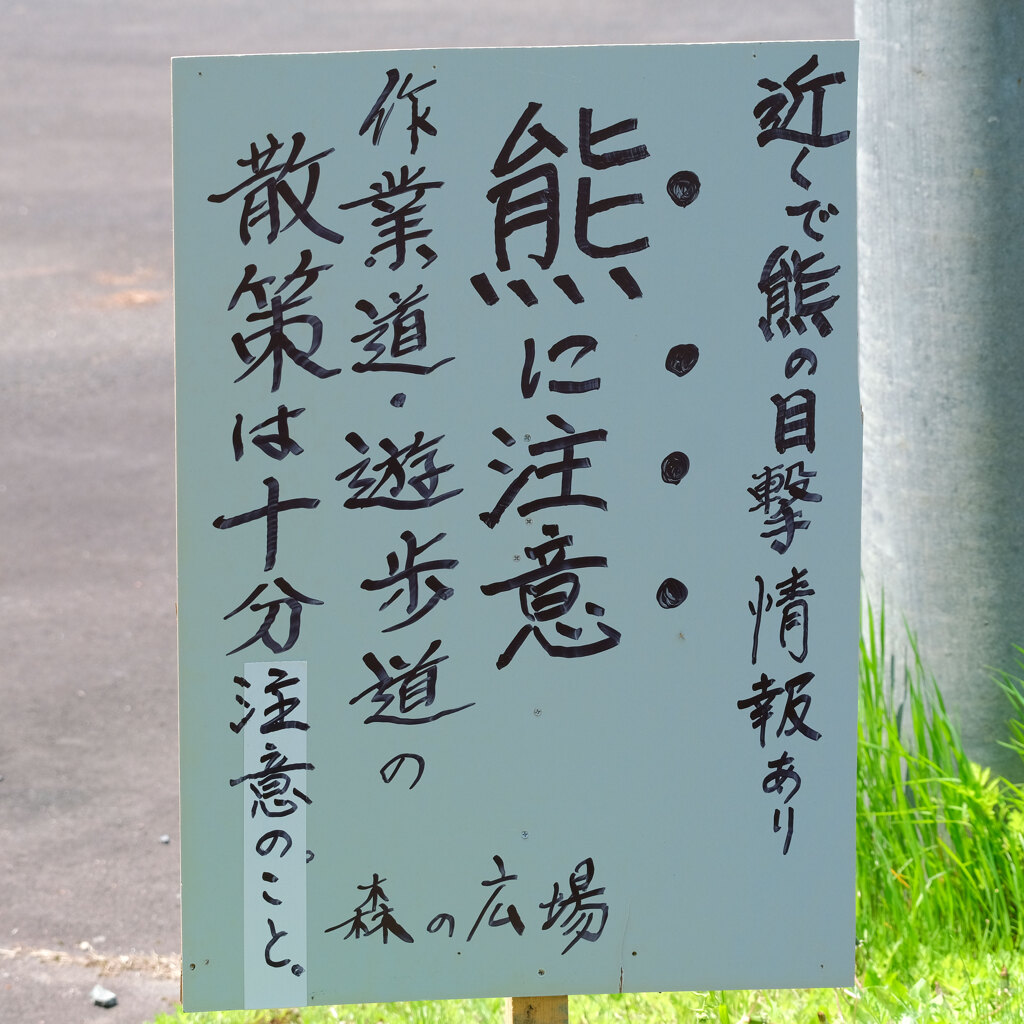 近くで熊の目撃情報あり
熊に注意
作業道・遊歩道の
散策は十分注意の。こと。
森の広場